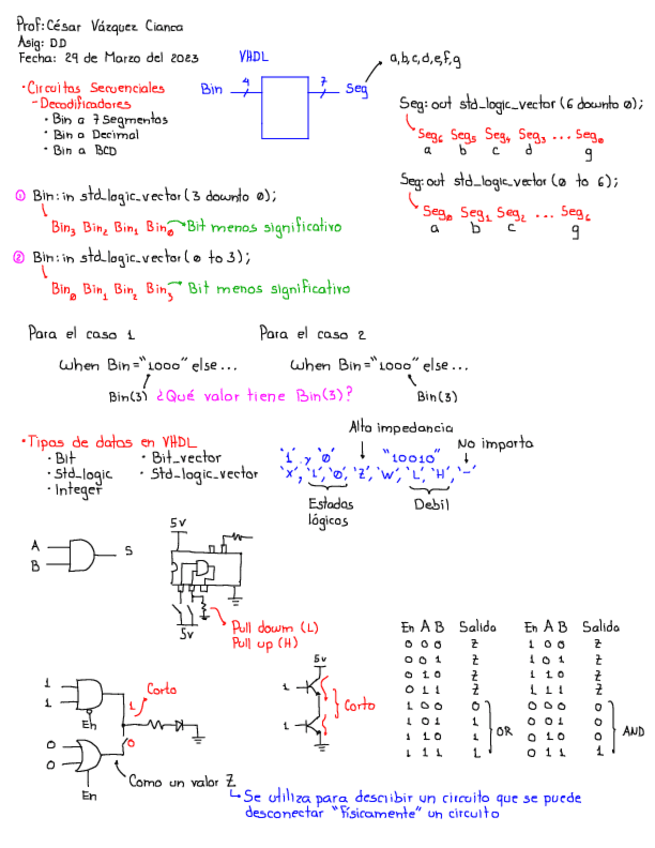 Prof: César Vázquez Cianca
Asig: DD
Fecha: 29 de Marzo del 2023
VHDL
a,b,c,d,e,f,g
Bin 4 7 Seg
· Circuitos Secuenciales
- Decodificadores
· Bin a 7 Segmentos
· Bin a Decimal
· Bin a BCD
Seg: out std_logic_vector (6 downto 0);
Seg6 Seg5 Seg4 Seg3 ... Seg0
a b c d g
Seg: out std_logic_vector (0 to 6);
Seg0 Seg1 Seg2 ... Seg6
a b c g
① Bin: in std_logic_vector (3 downto 0);
Bin3 Bin2 Bin1 Bin0 Bit menos significativo
② Bin: in std_logic_vector (0 to 3);
Bin0 Bin1 Bin2 Bin3 Bit menos significativo
Para el caso 1
when Bin="1000" else...
Bin(3) ¿Qué valor tiene Bin(3)?
Para el caso 2
when Bin="1000" else...
Bin(3)
· Tipos de datos en VHDL
· Bit · Bit_vector
· Std_logic · Std_logic_vector
· Integer
Alta impedancia
No importa
'1' y '0' "10010"
'X', '1', '0', 'Z', 'W', 'L', 'H', '-'
Estados lógicos
Debil
A
B
S
5v
5v
Pull dowm (L)
Pull up (H)
1
1
En
1
Corto
0
0
0
En
Como un valor Z
Se utiliza para describir un circuito que se puede
desconectar "físicamente" un circuito
5v
1
1
Corto
En A B Salida
0 0 0 Z
0 0 1 Z
0 1 0 Z
0 1 1 Z
1 0 0 0
1 0 1 1
1 1 0 1
1 1 1 1
OR
En A B Salida
1 0 0 Z
1 0 1 Z
1 1 0 Z
1 1 1 Z
0 0 0 0
0 0 1 0
0 1 0 0
0 1 1 1
AND